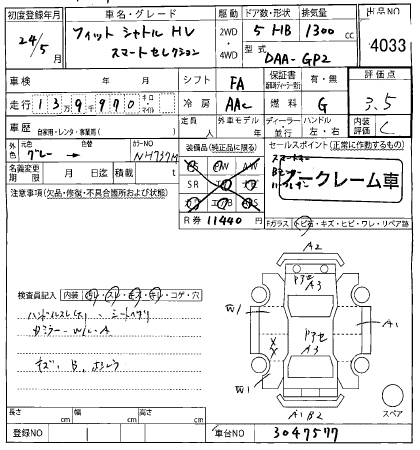 初度登録年月 車名・グレード 駆動 ドア数・形状 排気量 出品NO
24/5 フィット シャトル HV スマートセレクション 2WD・4WD 5 HB 1300cc 4033
型式 DAA-GP2
車検 年 月 シフト FA 保証書 有・無 評価点
走行 13万9千970 キロ・マイル 冷房 AAC 燃料 G 3.5
車歴 自家用・レンタ・事業用( ) 定員 人 外車モデル 年 ディーラー・並行 ハンドル 左・右 内装評価 C
外色 元色 グレー 色替 カラーNO NH737M 装備品(純正品に限る) セールスポイント(正常に作動するもの)
名義変更期限 月 日迄 積載 t SR
スマートキー
ノークレーム車
注意事項(欠品・修復・不具合箇所および状態)
R券 11440 円 Fガラス トビ石・キズ・ヒビ・ワレ・リペア跡
検査員記入 内装 切レ・スレ・モエ・キレ・コゲ・穴
ハンドルスレ(大) シートヘタリ
A2
A3
W1
A1
A3
W1
A1B2
スペア
長さ cm 幅 cm 高さ cm
登録NO 車台NO 3047577